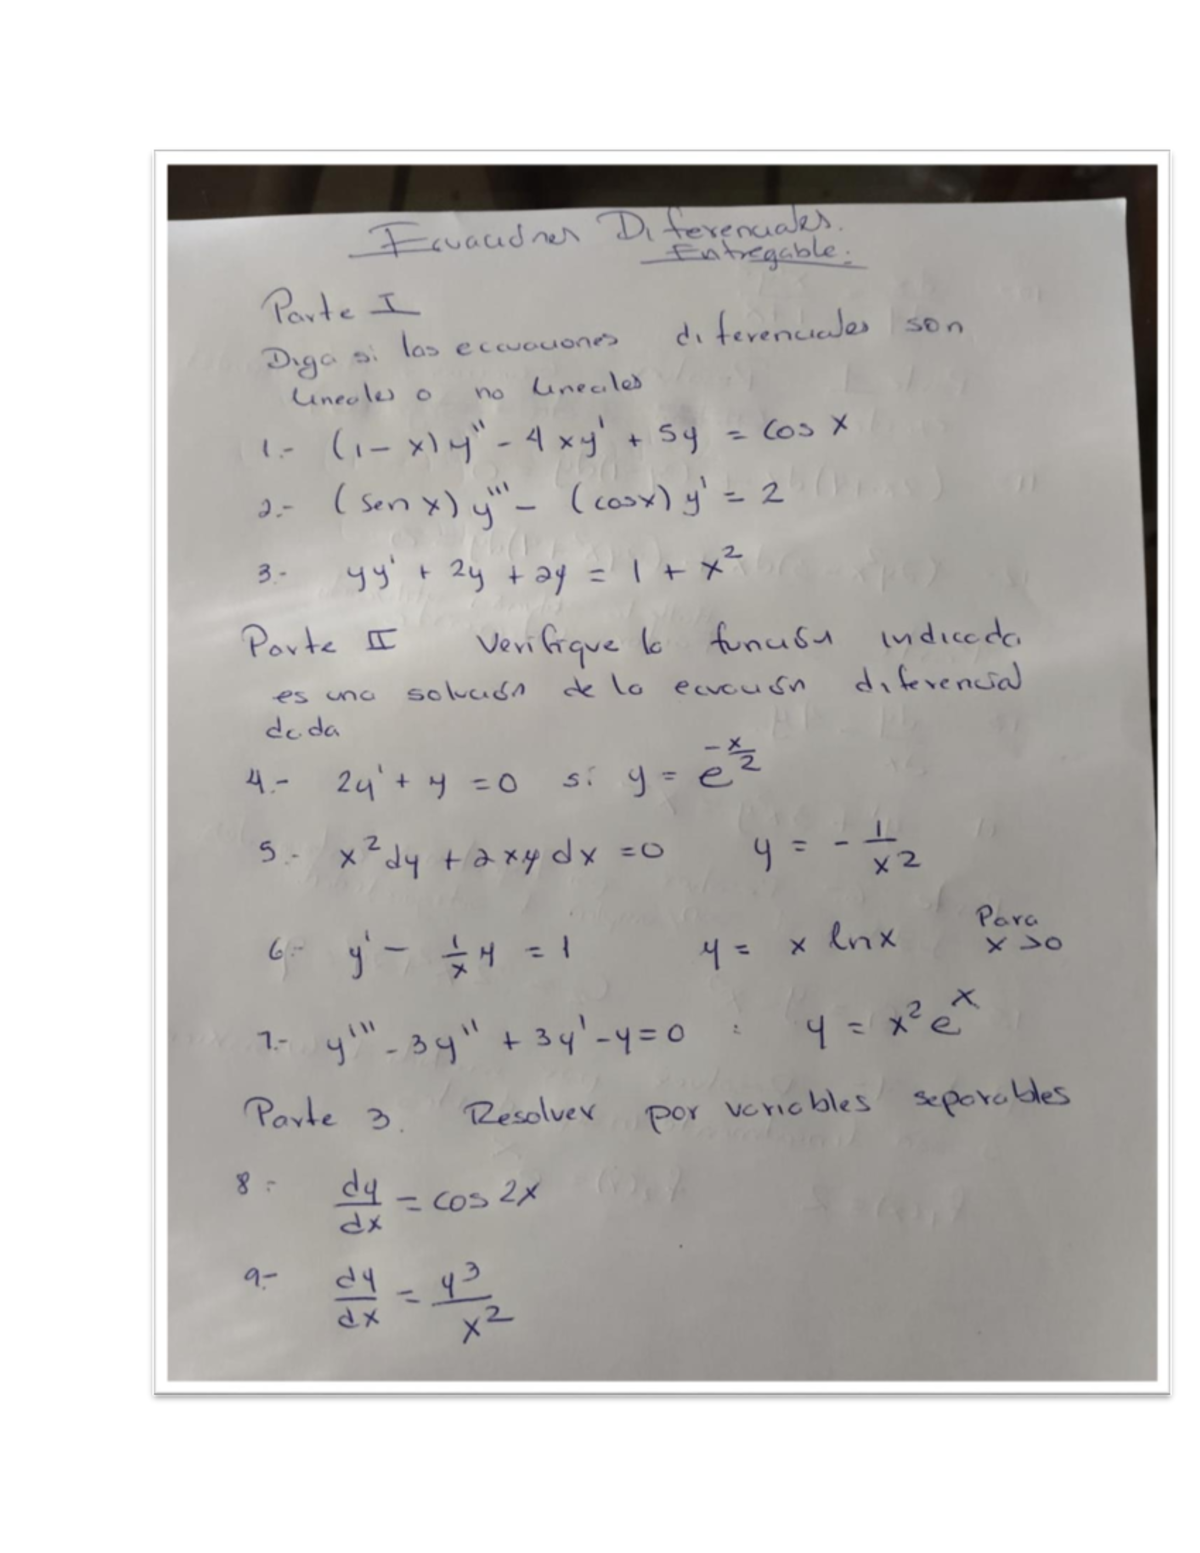 Ecuaciones Diferenciales.
Entregable.
Parte I
Diga si las ecuaciones diferenciales son
lineales o no lineales
1.- (1-x)y'' - 4xy' + 5y = cos x
2.- (sen x) y''' - (cosx) y' = 2
3.- yy' + 2y + 2y = 1 + x²
Parte II Verifique la función indicada
es una solución de la ecuación diferencial
dada
4.- 2y' + y = 0 si y = e^(-x/2)
5.- x²dy + 2xy dx = 0 y = - 1/x²
6.- y' - 1/x y = 1 y = x ln x Para x > 0
7.- y''' - 3y'' + 3y' - y = 0 : y = x² e^x
Parte 3. Resolver por variables separables
8.- dy/dx = cos 2x
9.- dy/dx = y³/x²